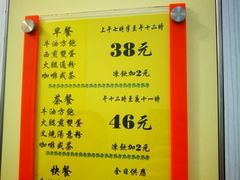 早餐
上午七時半至午十二時
牛油方飽
西煎雙蛋
火腿通粉
咖啡或茶
38元
凍飲加2元
茶餐
午十二時至夜十一時
牛油方飽
西煎雙蛋
叉燒湯意粉
咖啡或茶
46元
凍飲加2元
快餐
全日供應